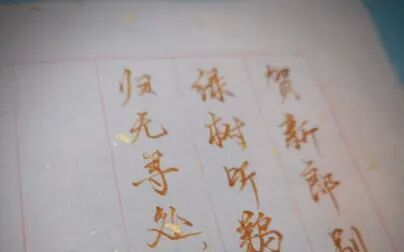 贺新郎别
绿树听鹈
归无寻处